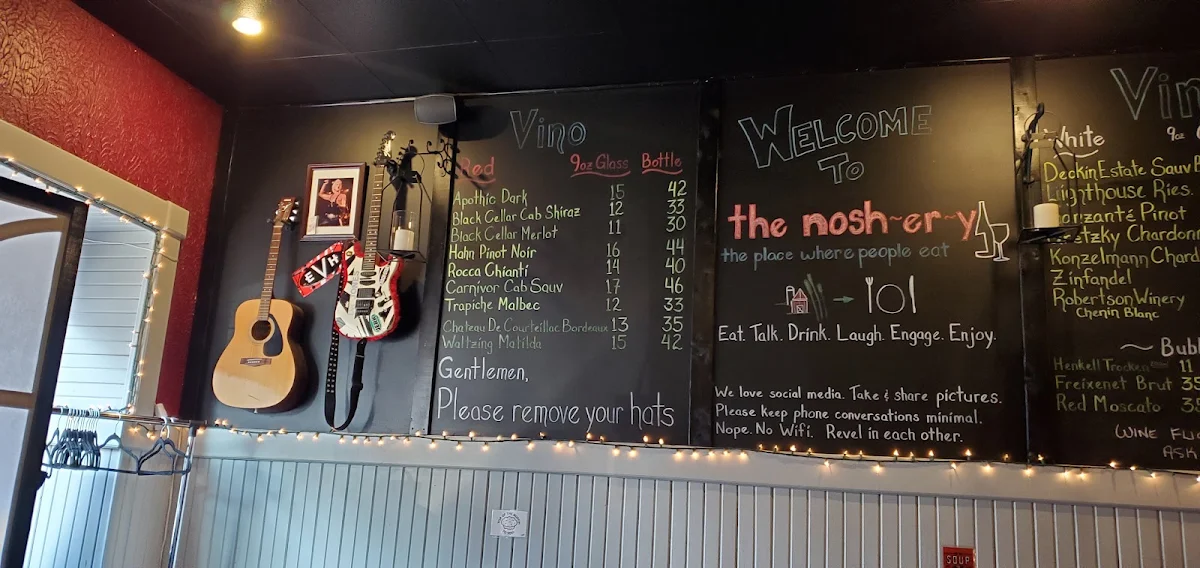 Vino
Red 9oz Glass Bottle
Apothic Dark 15 42
Black Cellar Cab Shiraz 12 33
Black Cellar Merlot 11 30
Hahn Pinot Noir 16 44
Rocca Chianti 14 40
Carnivor Cab Sauv 17 46
Trapiche Malbec 12 33
Chateau De Courteillac Bordeaux 13 35
Waltzing Matilda 15 42
Gentlemen,
Please remove your hats
EVH
WELCOME
To
the nosh~er~y
the place where people eat
Eat. Talk. Drink. Laugh. Engage. Enjoy.
We love social media. Take & share pictures.
Please keep phone conversations minimal.
Nope. No Wifi. Revel in each other.
Vin
White 9oz
Deakin Estate Sauv B
Lighthouse Ries
Pinot
Chardon
Konzelmann Chard
Zinfandel
Robertson Winery
Chenin Blanc
Bubb
Henkell Trocken 11
Freixenet Brut 35
Red Moscato
WINE FLIG
ASK
SOUP